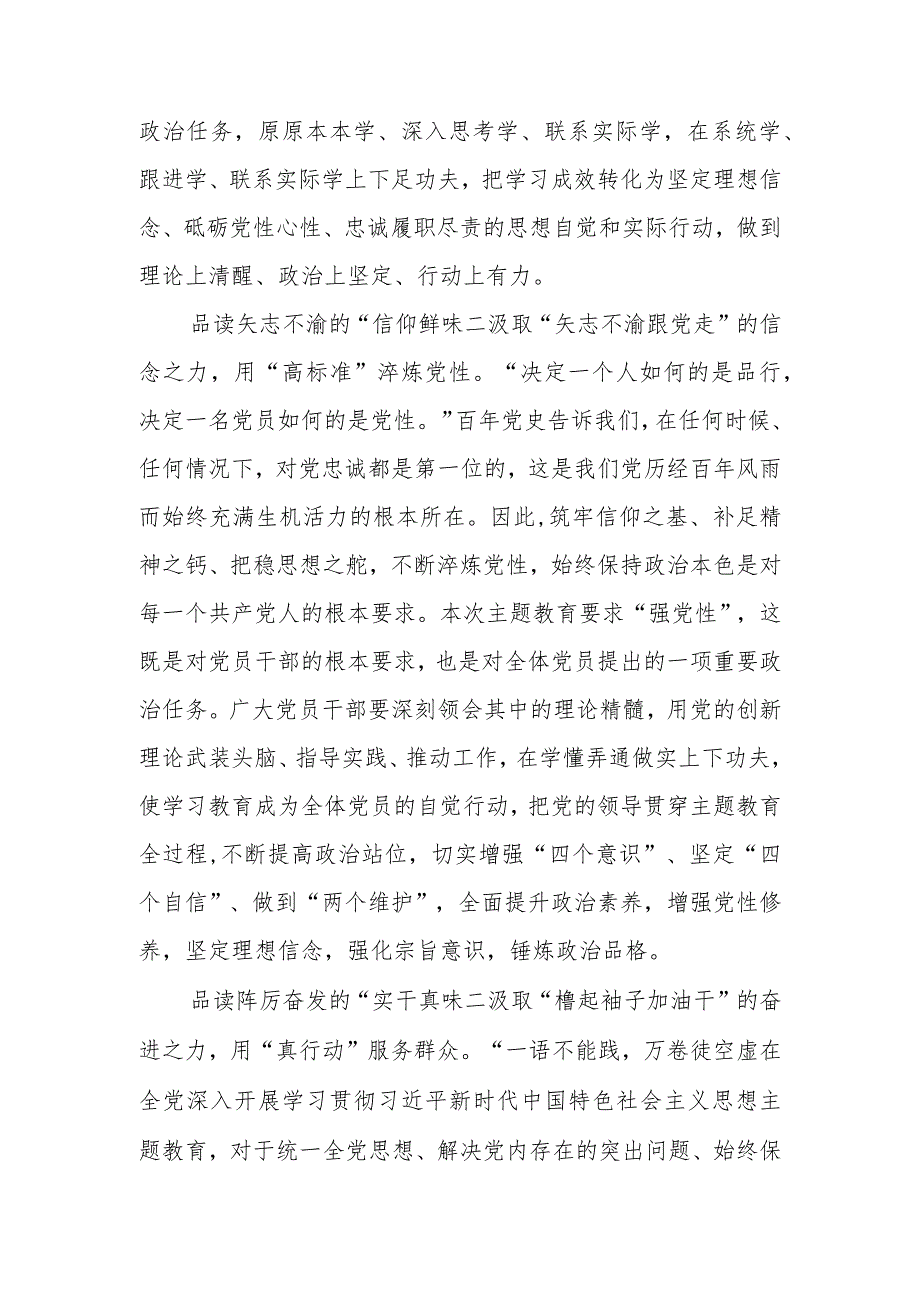 政治任务，原原本本学、深入思考学、联系实际学，在系统学、
跟进学、联系实际学上下足功夫，把学习成效转化为坚定理想信
念、砥砺党性心性、忠诚履职尽责的思想自觉和实际行动，做到
理论上清醒、政治上坚定、行动上有力。
品读矢志不渝的“信仰鲜味二汲取“矢志不渝跟党走”的信
念之力，用“高标准”淬炼党性。“决定一个人如何的是品行，
决定一名党员如何的是党性。”百年党史告诉我们，在任何时候、
任何情况下，对党忠诚都是第一位的，这是我们党历经百年风雨
而始终充满生机活力的根本所在。因此,筑牢信仰之基、补足精
神之钙、把稳思想之舵，不断淬炼党性，始终保持政治本色是对
每一个共产党人的根本要求。本次主题教育要求“强党性”，这
既是对党员干部的根本要求，也是对全体党员提出的一项重要政
治任务。广大党员干部要深刻领会其中的理论精髓，用党的创新
理论武装头脑、指导实践、推动工作，在学懂弄通做实上下功夫，
使学习教育成为全体党员的自觉行动，把党的领导贯穿主题教育
全过程,不断提高政治站位，切实增强“四个意识”、坚定“四
个自信”、做到“两个维护”，全面提升政治素养，增强党性修
养，坚定理想信念，强化宗旨意识，锤炼政治品格。
品读踔厉奋发的“实干真味二汲取“撸起袖子加油干”的奋
进之力，用“真行动”服务群众。“一语不能践，万卷徒空虚在
全党深入开展学习贯彻习近平新时代中国特色社会主义思想主
题教育，对于统一全党思想、解决党内存在的突出问题、始终保